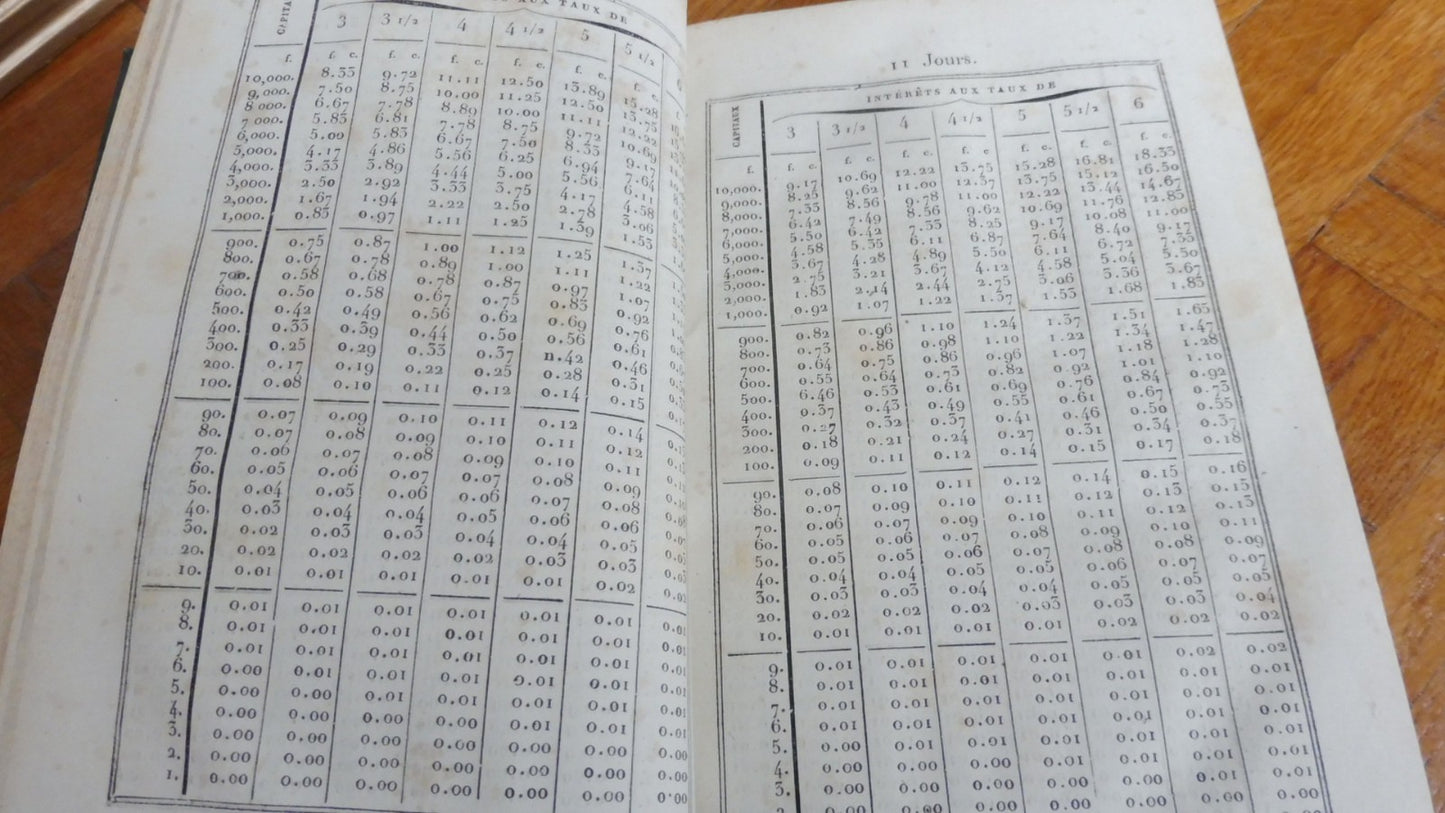 CAPITAU S AUX TAUX DE
3 3 1/2 4 4 1/2 5 5 1/2 6
f. f. c. f. c. f. c. f. c. f. c. f. c. f.
10,000. 8.33 9.72 11.11 12.50 13.89 15.28
9,000. 7.50 8.75 10.00 11.25 12.50 13.75
8 000. 6.67 7.78 8.89 10.00 11.11 12.22
7 000. 5.83 6.81 7.78 8.75 9.72 10.69
6,000. 5.00 5.83 6.67 7.50 8.33 9.17
5,000. 4.17 4.86 5.56 6.25 6.94 7.64
4,000. 3.33 3.89 4.44 5.00 5.56 6.11
3,000. 2.50 2.92 3.33 3.75 4.17 4.58
2,000. 1.67 1.94 2.22 2.50 2.78 3.06
1,000. 0.83 0.97 1.11 1.25 1.39 1.53
900. 0.75 0.87 1.00 1.12 1.25 1.37
800. 0.67 0.78 0.89 1.00 1.11 1.22
700. 0.58 0.68 0.78 0.87 0.97 1.07
600. 0.50 0.58 0.67 0.75 0.83 0.92
500. 0.42 0.49 0.56 0.62 0.69 0.76
400. 0.33 0.39 0.44 0.50 0.56 0.61
300. 0.25 0.29 0.33 0.37 n.42 0.46
200. 0.17 0.19 0.22 0.25 0.28 0.31
100. 0.08 0.10 0.11 0.12 0.14 0.15
90. 0.07 0.09 0.10 0.11 0.12 0.14
80. 0.07 0.08 0.09 0.10 0.11 0.12
70. 0.06 0.07 0.08 0.09 0.10 0.11
60. 0.05 0.06 0.07 0.07 0.08 0.09
50. 0.04 0.05 0.06 0.06 0.07 0.08
40. 0.03 0.04 0.04 0.05 0.06 0.06
30. 0.02 0.03 0.03 0.04 0.04 0.05
20. 0.02 0.02 0.02 0.02 0.03 0.03
10. 0.01 0.01 0.01 0.01 0.01 0.02
9. 0.01 0.01 0.01 0.01 0.01 0.01
8. 0.01 0.01 0.01 0.01 0.01 0.01
7. 0.01 0.01 0.01 0.01 0.01 0.01
6. 0.00 0.01 0.01 0.01 0.01 0.01
5. 0.00 0.00 0.01 0.01 0.01 0.01
4. 0.00 0.00 0.00 0.01 0.01 0.01
3. 0.00 0.00 0.00 0.00 0.00 0.00
2. 0.00 0.00 0.00 0.00 0.00 0.00
1. 0.00 0.00 0.00 0.00 0.00 0.00
11 Jours.
CAPITAUX INTÉRÊTS AUX TAUX DE
3 3 1/2 4 4 1/2 5 5 1/2 6
f. f. c. f. c. f. c. f. c. f. c. f. c. f. c.
10,000. 9.17 10.69 12.22 13.75 15.28 16.81 18.33
9,000. 8.25 9.62 11.00 12.37 13.75 15.12 16.50
8,000. 7.33 8.56 9.78 11.00 12.22 13.44 14.67
7,000. 6.42 7.49 8.56 9.62 10.69 11.76 12.83
6,000. 5.50 6.42 7.33 8.25 9.17 10.08 11.00
5,000. 4.58 5.35 6.11 6.87 7.64 8.40 9.17
4,000. 3.67 4.28 4.89 5.50 6.11 6.72 7.33
3,000. 2.75 3.21 3.67 4.12 4.58 5.04 5.50
2,000. 1.83 2.14 2.44 2.75 3.06 3.36 3.67
1,000. 0.92 1.07 1.22 1.37 1.53 1.68 1.83
900. 0.82 0.96 1.10 1.24 1.37 1.51 1.65
800. 0.73 0.86 0.98 1.10 1.22 1.34 1.47
700. 0.64 0.75 0.86 0.96 1.07 1.18 1.28
600. 0.55 0.64 0.73 0.82 0.92 1.01 1.10
500. 6.46 0.53 0.61 0.69 0.76 0.84 0.92
400. 0.37 0.43 0.49 0.55 0.61 0.67 0.73
300. 0.27 0.32 0.37 0.41 0.46 0.50 0.55
200. 0.18 0.21 0.24 0.27 0.31 0.34 0.37
100. 0.09 0.11 0.12 0.14 0.15 0.17 0.18
90. 0.08 0.10 0.11 0.12 0.14 0.15 0.16
80. 0.07 0.09 0.10 0.11 0.12 0.13 0.15
70. 0.06 0.07 0.09 0.10 0.11 0.12 0.13
60. 0.05 0.06 0.07 0.08 0.09 0.10 0.11
50. 0.05 0.05 0.06 0.07 0.08 0.08 0.09
40. 0.04 0.04 0.05 0.05 0.06 0.07 0.07
30. 0.03 0.03 0.04 0.04 0.05 0.05 0.05
20. 0.02 0.02 0.02 0.03 0.03 0.03 0.04
10. 0.01 0.01 0.01 0.01 0.02 0.02 0.02
9. 0.01 0.01 0.01 0.01 0.01 0.02 0.02
8. 0.01 0.01 0.01 0.01 0.01 0.01 0.01
7. 0.01 0.01 0.01 0.01 0.01 0.01 0.01
6. 0.01 0.01 0.01 0.01 0.01 0.01 0.01
5. 0.00 0.01 0.01 0.01 0.01 0.01 0.01
4. 0.00 0.00 0.00 0.01 0.01 0.01 0.01
3. 0.00 0.00 0.00 0.00 0.00 0.01 0.01
0.00 0.00 0.00 0.00 0.00 0.00